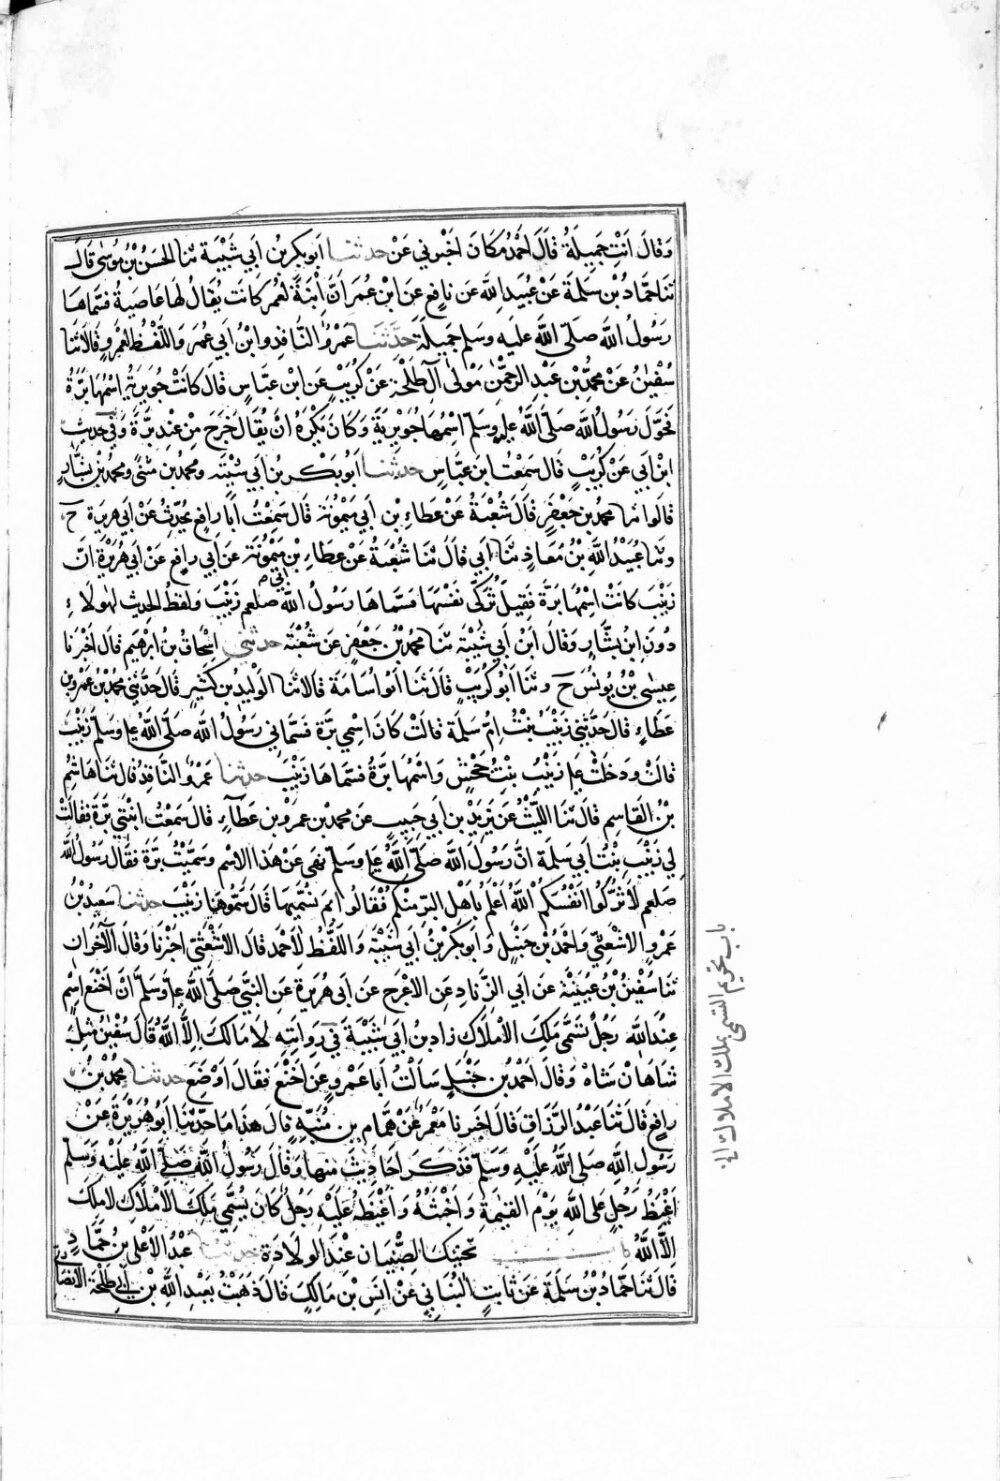 وَقَالَ اَنْتِ جَمِيلَةُ قَالَ اَحْمَدُ مَكَانَ اَخْبَرَنِي عَنْ حدثنا اَبُو بَكْرِ بْنُ اَبِي شَيْبَةَ ثنا الْحَسَنُ بْنُ مُوسَى قَالَ
ثَنَا حَمَّادُ بْنُ سَلَمَةَ عَنْ عُبَيْدِ اللَّهِ عَنْ نَافِعٍ عَنِ ابْنِ عُمَرَ اَنَّ ابْنَةً لِعُمَرَ كَانَتْ يُقَالُ لَهَا عَاصِيَةُ فَسَمَّاهَا
رَسُولُ اللَّهِ صَلَّى اللَّهُ عَلَيْهِ وَسَلَّمَ جَمِيلَةَ حَدَّثَنَا عَمْرٌو النَّاقِدُ وَابْنُ اَبِي عُمَرَ وَاللَّفْظُ لِعَمْرٍو قَالَا ثَنَا
سُفْيٰنُ عَنْ مُحَمَّدِ بْنِ عَبْدِ الرَّحْمٰنِ مَوْلَى آلِ طَلْحَةَ عَنْ كُرَيْبٍ عَنِ ابْنِ عَبَّاسٍ قَالَ كَانَتْ جُوَيْرِيَةُ اسْمُهَا بَرَّةُ
فَحَوَّلَ رَسُولُ اللَّهِ صَلَّى اللَّهُ عَلَيْهِ وَسَلَّمَ اسْمَهَا جُوَيْرِيَةَ وَكَانَ يَكْرَهُ اَنْ يُقَالَ خَرَجَ مِنْ عِنْدِ بَرَّةَ وَفِي حديث
ابْنِ اَبِي عَنْ كُرَيْبٍ قَالَ سَمِعْتُ ابْنَ عَبَّاسٍ حدثنا اَبُو بَكْرِ بْنُ اَبِي شَيْبَةَ وَمُحَمَّدُ بْنُ مُثَنًّى وَمُحَمَّدُ بْنُ بَشَّارٍ
قَالُوا ثنا مُحَمَّدُ بْنُ جَعْفَرٍ قَالَ شُعْبَةُ عَنْ عَطَاءِ بْنِ اَبِي مَيْمُونَةَ قَالَ سَمِعْتُ اَبَا رَافِعٍ يُحَدِّثُ عَنْ اَبِي هُرَيْرَةَ ح
وثنا عُبَيْدُ اللَّهِ بْنُ مُعَاذٍ ثنَا اَبِي قَالَ ثنَا شُعْبَةُ عَنْ عَطَاءِ بْنِ اَبِي مَيْمُونَةَ عَنْ اَبِي رَافِعٍ عَنْ اَبِي هُرَيْرَةَ اَنَّ
زَيْنَبَ كَانَتْ اسْمُهَا بَرَّةَ فَقِيلَ تُزَكِّي نَفْسَهَا فَسَمَّاهَا رَسُولُ اللَّهِ صلعم زَيْنَبَ وَلَفْظُ الْحَدِيث لِهٰؤُلَاءِ
دُونَ ابْنِ بَشَّارٍ وَقَالَ ابْنُ اَبِي شَيْبَةَ ثنَا مُحَمَّدُ بْنُ جَعْفَرٍ عَنْ شُعْبَةَ حدثني اِسْحَاقُ بْنُ اِبْرٰهِيمَ قَالَ اَخْبَرَنَا
عِيسَى بْنُ يُونُسَ ح وثَنَا اَبُو كُرَيْبٍ قَالَ ثَنَا اَبُو اُسَامَةَ قَالَا ثنا الْوَلِيدُ بْنُ كَثِيرٍ قَالَ حَدَّثَنِي مُحَمَّدُ بْنُ عَمْرِو بْنِ
عَطَاءٍ قَالَ حَدَّثَتْنِي زَيْنَبُ بِنْتُ اُمِّ سَلَمَةَ قَالَتْ كَانَ اسْمِي بَرَّةَ فَسَمَّانِي رَسُولُ اللَّهِ صَلَّى اللَّهُ عليه وَسَلَّمَ زَيْنَبَ
قَالَتْ وَدَخَلَتْ عليه زَيْنَبُ بِنْتُ جَحْشٍ وَاسْمُهَا بَرَّةُ فَسَمَّاهَا زَيْنَبَ حدثنا عَمْرٌو النَّاقِدُ قَالَ ثنَا هَاشِمُ
بْنُ الْقَاسِمِ قَالَ ثنَا اللَّيْثُ عَنْ يَزِيدَ بْنِ اَبِي حَبِيبٍ عَنْ مُحَمَّدِ بْنِ عَمْرِو بْنِ عَطَاءٍ قَالَ سَمَّيْتُ ابْنَتِي بَرَّةَ فَقَالَتْ
لِي زَيْنَبُ بِنْتُ اَبِي سَلَمَةَ اِنَّ رَسُولَ اللَّهِ صَلَّى اللَّهُ عليه وَسَلَّمَ نَهَى عَنْ هٰذَا الْاِسْمِ وَسُمِّيْتُ بَرَّةَ فَقَالَ رَسُولُ اللَّهِ
صلعم لَا تُزَكُّوا اَنْفُسَكُمْ اَللَّهُ اَعْلَمُ بِاَهْلِ الْبِرِّ مِنْكُمْ فَقَالُوا بِمَ نُسَمِّيهَا قَالَ سَمُّوهَا زَيْنَبَ حدثنا سَعِيدُ بْنُ
عَمْرٍو الْاَشْعَثِيُّ وَاَحْمَدُ بْنُ حَنْبَلٍ وَاَبُو بَكْرِ بْنُ اَبِي شَيْبَةَ وَاللَّفْظُ لِاَحْمَدَ قَالَ الْاَشْعَثِيُّ اَخْبَرَنَا وَقَالَ الْآخَرَانِ
ثنَا سُفْيٰنُ بْنُ عُيَيْنَةَ عَنْ اَبِي الزِّنَادِ عَنِ الْاَعْرَجِ عَنْ اَبِي هُرَيْرَةَ عَنِ النَّبِيِّ صَلَّى اللَّهُ عليه وَسَلَّمَ اَنَّ اَخْنَعَ اسْمٍ
عِنْدَ اللَّهِ رَجُلٌ تَسَمَّى مَلِكَ الْاَمْلَاكِ زَادَ ابْنُ اَبِي شَيْبَةَ فِي رِوَايَتِهِ لَا مَالِكَ اِلَّا اللَّهُ قَالَ سُفْيٰنُ مِثْلُ
شَاهَانْ شَاهْ وَقَالَ اَحْمَدُ بْنُ حَنْبَلٍ سَاَلْتُ اَبَا عَمْرٍو عَنْ اَخْنَعَ فَقَالَ اَوْضَعَ حدثنا مُحَمَّدُ بْنُ
رَافِعٍ قَالَ ثَنَا عَبْدُ الرَّزَّاقِ قَالَ اَخْبَرَنَا مَعْمَرٌ عَنْ هَمَّامِ بْنِ مُنَبِّهٍ قَالَ هٰذَا مَا حَدَّثَنَا اَبُو هُرَيْرَةَ عَنْ
رَسُولِ اللَّهِ صَلَّى اللَّهُ عَلَيْهِ وَسَلَّمَ فَذَكَرَ اَحَادِيثَ مِنْهَا وَقَالَ رَسُولُ اللَّهِ صَلَّى اللَّهُ عَلَيْهِ وَسَلَّمَ
اَغْيَظُ رَجُلٍ عَلَى اللَّهِ يَوْمَ الْقِيٰمَةِ وَاَخْبَثُهُ وَاَغْيَظُهُ عَلَيْهِ رَجُلٌ كَانَ يُسَمَّى مَلِكَ الْاَمْلَاكِ لَا مَلِكَ
اِلَّا اللَّهُ باب تحنيك الصِّبْيَانِ عِنْدَ الْوِلَادَةِ حدثنا عَبْدُ الْاَعْلَى بْنُ حَمَّادٍ
قَالَ ثَنَا حَمَّادُ بْنُ سَلَمَةَ عَنْ ثَابِتٍ الْبُنَانِي عَنْ اَنَسِ بْنِ مَالِكٍ قَالَ ذَهَبْتُ بِعَبْدِ اللَّهِ بْنِ اَبِي طَلْحَةَ الْاَنْصَارِيِّ
باب تحريم التسمي بملك الاملاك الخ